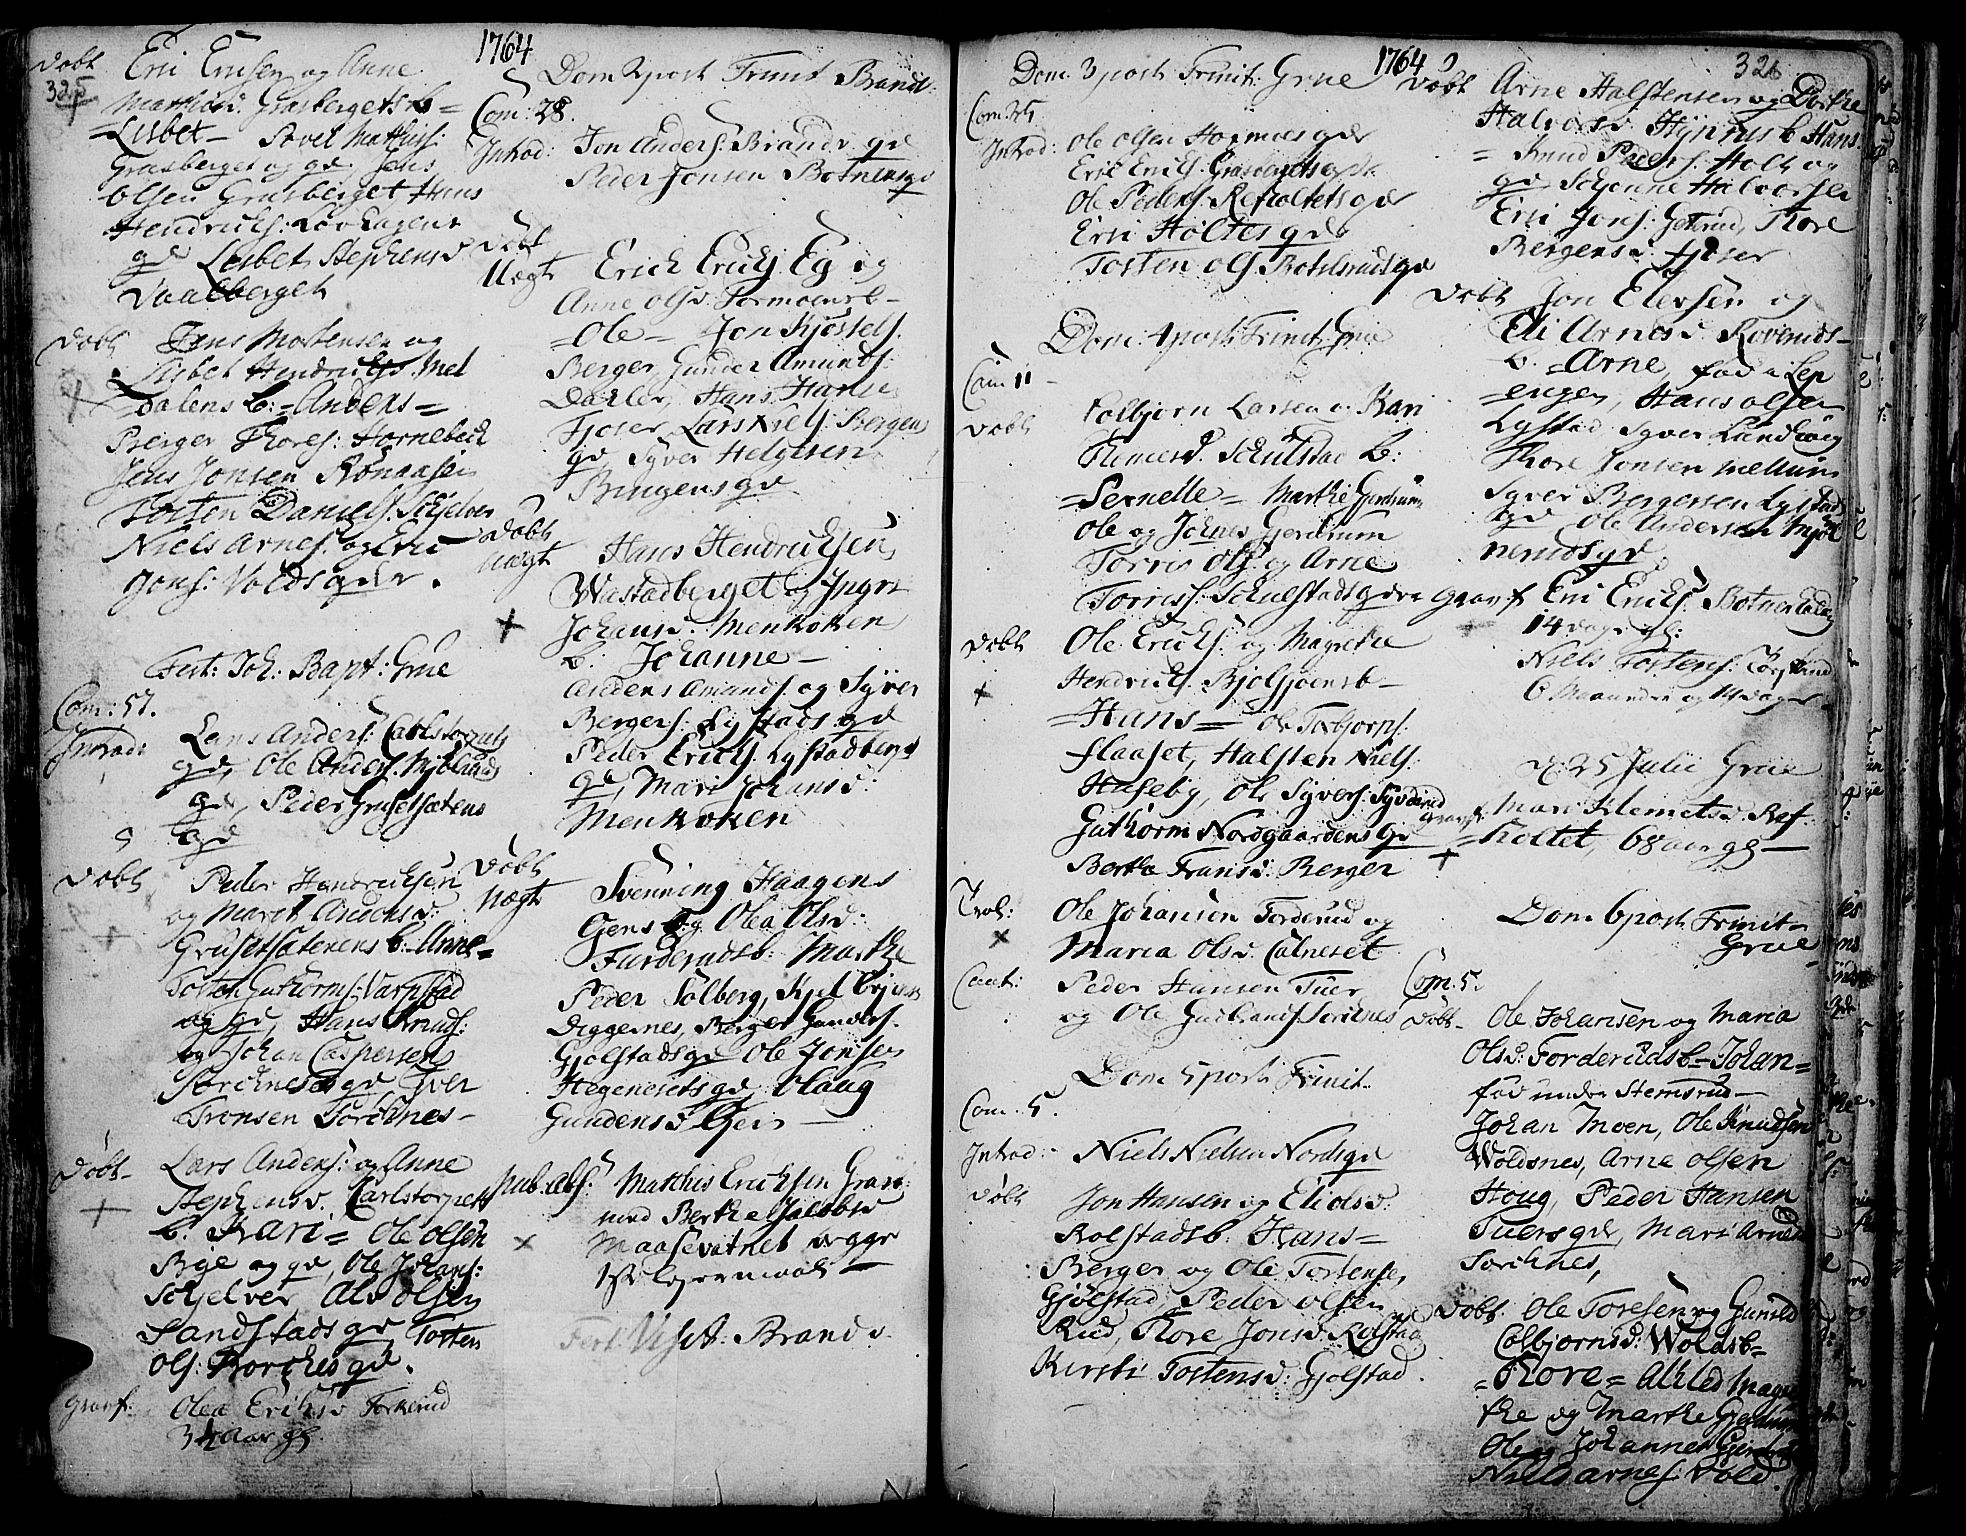 1764
325
Døbt Eric Ericsen og Anne
Mathisd. Grasbergets b =
= Lisbet = Sivel Mathiss:
Grasberget og qv. Jens
Olsen Grasberget Hans
Hendrichs: Løvhagens
qv Lisbet Stephensd
Vaalberget
Døbt Jens Mortensen og
Lisbet Hendrichsd. Mel
dalens b: = Anders =
Berger Thores: Hornebech
Jens Jonsen Rønaasen
Tosten Daniels. Schjelver
Niels Arnes. og Eric
Jons: Volds qvr.
Fest: Joh: Bapt: Grue
Com: 57.
Introd: Lars Anders: Carlstorpets
qv, Ole Anders. Mjølnerud
qv, Peder Grusetsætens
qv
Døbt Peder Hendrichsen
og Maret Andersd:
Grusetsæterens b: Anne =
Tosten Guthorms: Varpstad
og qv, Hans Knuds:
og Johan Caspersen
Torchnes qv Iver
Tronsen Torchnes -
Døbt - Lars Anders: og Anne
Stephensd. Carlstorpets
b. Kari = Ole Olsen
Bye og qv, Ole Johans:
Schjelver, Alv Olsen
Sandstads qv Tosten
Ols: Borches qv.
Graf: Olea Ericsd Torkerud
3½ aar gl.
Dom 2 post Trinit Brandv:
Com: 28.
Introd: Jon Anders: Brandv. qv
Peder Jonsen Botners qv
Døbt
Uegt Erich Erichs. Eg og
Anne Olsd. Tormoens b -
= Ole - Jon Kjøssels.
Berger Gunder Amunds.
Dahler, Hans Hans.
Fjoser, Lars Niels. Bergens
qv Syver Helgesen
Bingens qv
Døbt
Uegt Hans Hendrichsen
Wastadberget og Ingri
Johansd. Menkoken
b. Johanne -
Anders Amunds. og Syver
Bergers. Lystads qv
Peder Erichs. Lystadbergs
qv, Mari Johansd:
Menkoken
Døbt
Uegt Svenning Haagens
Gens og Olea Olsd:
Furderuds b. Marthe
Peder Solberg, Kjel Brynils
Diggernes, Berger Gunders.
Gjolstads qv Ole Jonsen
Hegenesets qv, Olaug
Gundersd Gjers -
Pub. abs: Matthis Erichsen Gras:
med Berthe Jacobsd
Maasevatnet begge
1ste leyermaal -
Fest: Visit: Brandv.
1764
326
Dom. 3 post Trinit: Grue
Com. 25
Introd: Ole Olsen Holmes qv
Eric Erics. Grasbergets qv
Ole Peders: Refholtets qv
Eric Holtes qv
Tosten Ols. Botelsruds qv
Dom: 4 post: Trinit: Grue
Com 11 -
Døbt Colbjørn Larsen og Kari
Clemesd. Schulstad b:
= Pernelle = Marthe Gjerdrum
Ole og Johnes Gjerdrum
Torris Ols. og Arne
Torriss. Schulstads qvr
Døbt Ole Erichs. og Magrethe
Hendrichs. Bjolsjoens b -
= Hans = Ole Torbjorns.
Flaaset, Halsten Niels.
Huseby, Ole Syvers: Syvderud
Guthorm Nordgaardens qv
Berthe Fransd. Berger
Trol: Ole Johansen Forderud og
Maria Olsd. Calneset
Caut: Peder Hansen Tuer
og Ole Gudbrands. Torchnes
Dom 5 post Trinit.
Com. 5.
Introd: - Niels Nielsen Nords qv
Døbt Jon Hansen og Eli Olsd.
Rolstads b. Hans =
Berger og Ole Tostense,
Gjølstad, Peder Olsen
Rud, Thore Jonsd. Rolstad
Kirsti Tostensd. Gjolstad.
Døbt Arne Halstensen og Dorthe
Halvorsd. Hynnes b. Hans.
= Knud Peders. Holt og
qv Schonne Halvorsen
Eric Jons. Gotrud, Thore
Bergensd. Fjoser
Døbt Jon Elersen og
Eli Arnesd. Rovenuds -
b. = Arne, fad: Lep
engen, Hans Olsen
Lystad Syver Lundberg
Thore Jonsen Mellum
Syver Bergersen Lystads
qv Ole Andersen Mjøl
neruds qv.
Graf Eric Erichs. Botnerhaug
14 dage gl:
Niels Tostens. Torchrud
6 Maaneder og 14 dager.
d. 25 Julii Grue
Graf: Mari Klemetsd. Ref
= holtet, 68 aar gl -
Dom 6 post Trinit -
Grue
Com. 5.
Døbt - Ole Johansen og Maria
Olsd. Forderuds b - Johan =
fad under Stemsrud -
Johan Moen, Ole Knudsen
Woldsnes, Arne Olsen
Houg, Peder Hansen
Tuers qv, Mari Arnesd
Torchnes,
Døbt. Ole Toresen og Gunild
Colbjornsd: Wolds b =
= Thore = Ahled Magre
the og Marthe Gjerdrum
Ole og Johannes Gjerdrum
Niels Arnes. Vold.